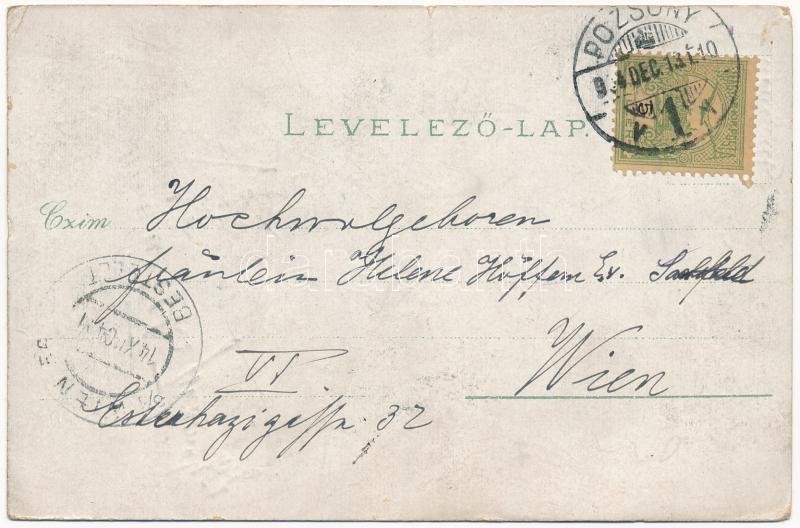 POZSONY
904 DEC. 13
1
LEVELEZŐ-LAP.
Czim Hochwolgeboren
fräulein Helene Höffern Ev. Saalfeld
Wien
VI
Esterhazigasse 32
WIEN
BESTELLT
14 XII 04